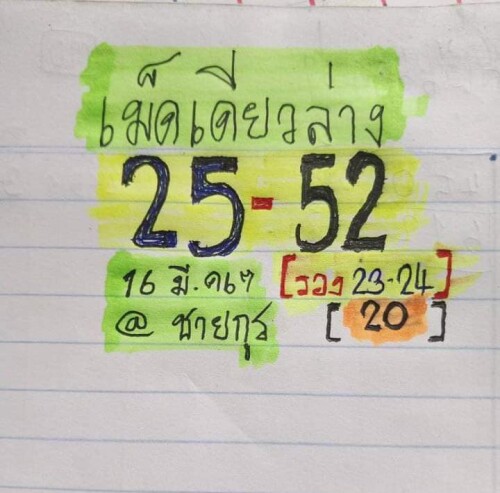 เม็ดเดียวล่าง
25-52
16 มี.ค 67 [รอง 23-24]
@ ชายกุร [20]